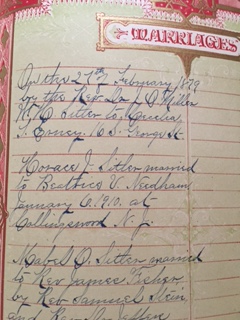 MARRIAGES
On the 27th February 1879
by the Rev Dr J. O. Miller
W. H. Sitler to Cecelia
S. Erney. 16 S. George St
Horace J. Sitler married
to Beatrice V. Needham
January 6. 1910. at
Collingswood N. J.
Mabel O. Sitler married
to Rev James Fisher
by Rev Samuel Stein
and Rev